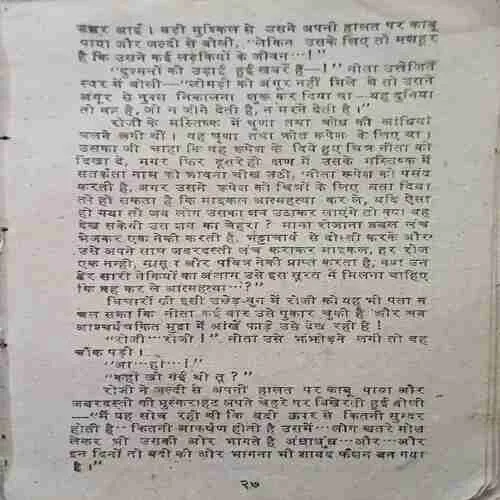 नजर आई। बड़ी मुश्किल से उसने अपनी हालत पर काबू
पाया और जल्दी से बोली, "लेकिन उसके लिए तो मशहूर
है कि उसने कई लड़कियों के जीवन...!"
"दुश्मनों की उड़ाई हुई खबरें हैं—!" नीता उत्तेजित
स्वर में बोली—"लोमड़ी को अंगूर नहीं मिले थे तो उसने
अंगूर से नुक्स निकालना शुरू कर दिया था—यह दुनिया
तो वह है, जो न जीने देती है, न मरने देती है।"
रोजी के मस्तिष्क में घृणा तथा क्रोध की आंधियां
चलने लगी थीं। यह घृणा तथा क्रोध रूपेश के लिए था।
उसका जी चाहा कि वह रूपेश के दिये हुए चित्र नीता को
दिखा दे, मगर फिर दूसरे ही क्षण में उसके मस्तिष्क में
सतर्कता नाम की भावना चीख उठी, 'नीता रूपेश को पसंद
करती है, अगर उसने रूपेश को चित्रों के लिए बता दिया
तो हो सकता है कि माइकल आत्महत्या कर ले, यदि ऐसा
हो गया तो जब लोग उसका शव उठाकर लाएंगे तो क्या वह
देख सकेगी उस शव का चेहरा? माना रोजाना डबल लंच
भेजकर एक नेकी करती है, भट्टाचार्य से दोस्ती करके और
उसे अपने साथ जबरदस्ती लंच कराकर माइकल, हर रोज
एक नन्हीं, मासूम और पवित्र नेकी प्राप्त करता है, क्या उन
ढेर सारी नेकियों का अंजाम उसे इस सूरत में मिलना चाहिए
कि वह कर ले आत्महत्या...?"
विचारों की इसी उधेड़-बुन में रोजी को यह भी पता न
चल सका कि नीता कई बार उसे पुकार चुकी है और अब
आश्चर्यचकित मुद्रा में आंखें फाड़े उसे देख रही है!
"रोजी...रोजी!" नीता उसे झंझोड़ने लगी तो वह
चौंक पड़ी।
"आ...हां...!"
"कहां खो गई थी तू?"
रोजी ने जल्दी से अपनी हालत पर काबू पाया और
जबरदस्ती की मुस्कराहट अपने चेहरे पर बिखेरती हुई बोली
—"मैं यह सोच रही थी कि बदी ऊपर से कितनी सुन्दर
होती है...कितना आकर्षण होती है उसमें...लोग खतरे मोल
लेकर भी उसकी ओर भागते हैं अंधाधुंध...और...और
इन दिनों तो बदी की ओर भागना भी शायद फैशन बन गया
है।"
२७